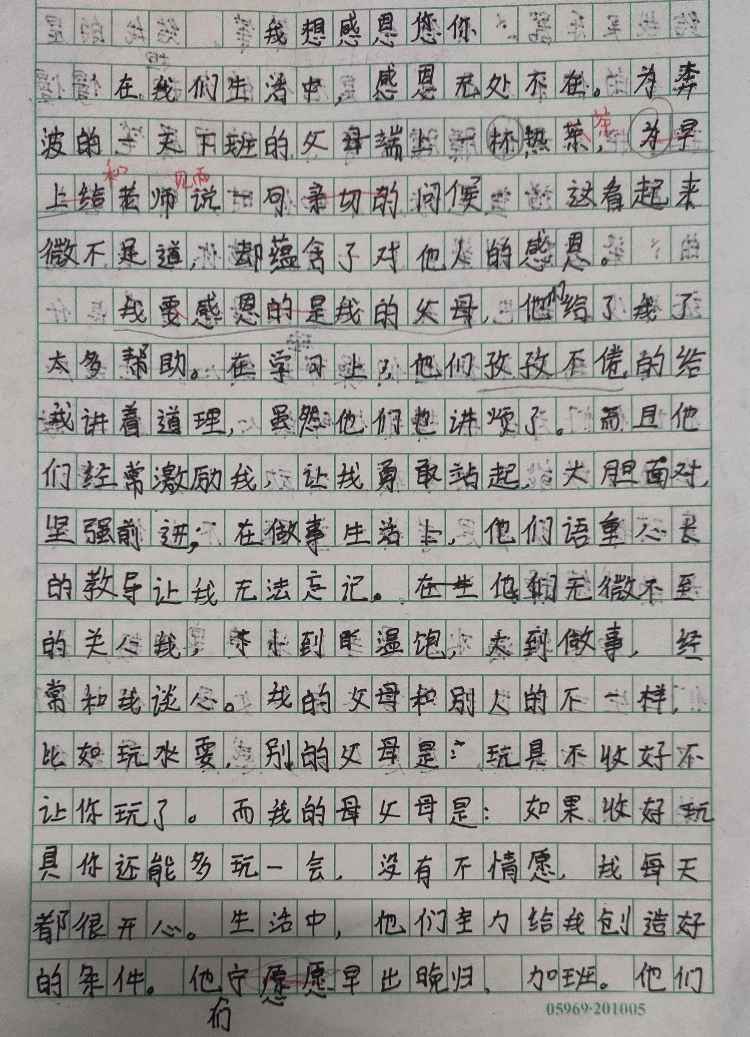 我想感恩您你
在我们生活中，感恩无处不在。为奔
波的一天下班的父母端上一杯热茶，为早
茶
和 见面
上给老师说一句亲切的问候 这看起来
微不足道，却蕴含了对他人的感恩。
我要感恩的是我的父母，他们给了我了
太多帮助。在学习上，他们孜孜不倦的给
我讲着道理，虽然他们也讲烦了。而且他
们经常激励我，让我勇敢站起，大胆面对，
坚强前进；在做事生活上，他们语重心长
的教导让我无法忘记。在生他们无微不至
的关心我，小到温饱，大到做事，经
常和我谈心。我的父母和别人的不一样，
比如玩水要，别的父母是：玩具不收好不
让你玩了。而我的母父母是：如果收好玩
具你还能多玩一会，没有不情愿，我每天
都很开心。生活中，他们全力给我创造好
的条件。他宁愿愿早出晚归、加班。他们
们
05969·201005